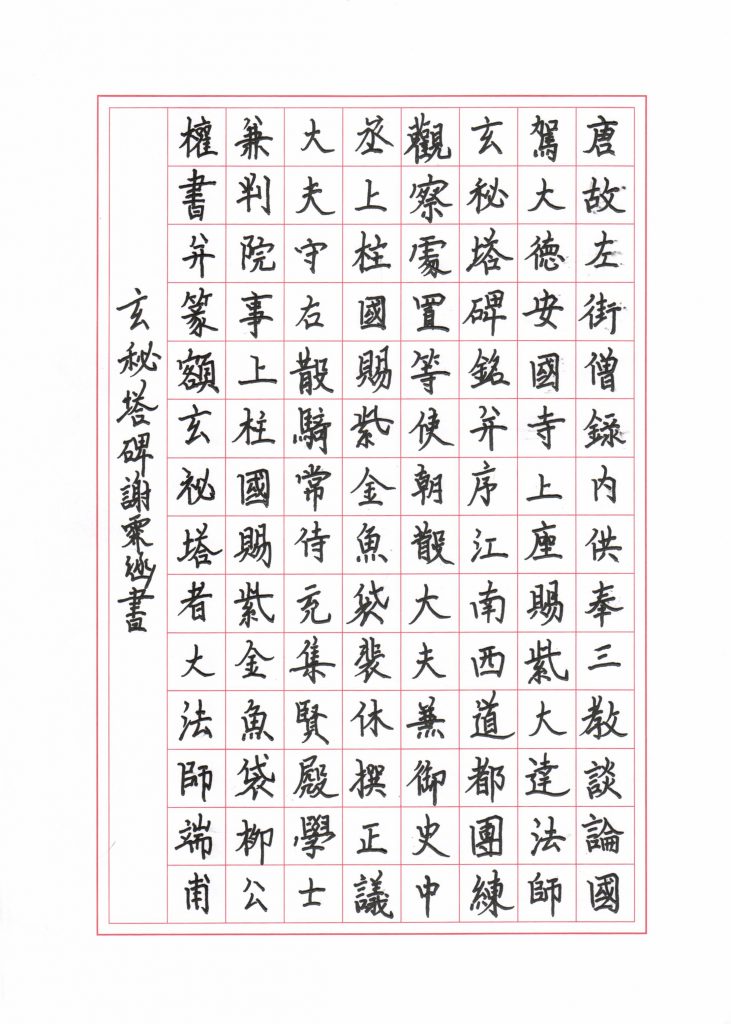 唐故左街僧錄內供奉三教談論國
駕大德安國寺上座賜紫大達法師
玄秘塔碑銘并序江南西道都團練
觀察處置等使朝散大夫兼御史中
丞上柱國賜紫金魚袋裴休撰正議
大夫守右散騎常侍充集賢殿學士
兼判院事上柱國賜紫金魚袋柳公
權書并篆額玄祕塔者大法師端甫
玄秘塔碑謝书書